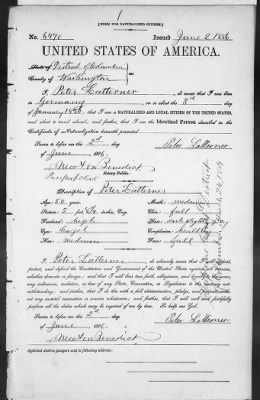 [FORM FOR NATURALIZED CITIZEN.]
No. 6470 Issued June 2, 1886
UNITED STATES OF AMERICA.
State of District of Columbia
County of Washington
I, Peter Latterner, do swear that I was born
in Germany on or about the 3rd day
of January 1836, that I am a NATURALIZED AND LOYAL CITIZEN OF THE UNITED STATES,
and about to travel abroad; and further, that I am the Identical Person described in the
Certificate of Naturalization herewith presented.
Sworn to before me this 2nd Peter Latterner
day of June 1886.
Newton Benedict
Notary Public.
Passport Clerk
Description of Peter Latterner
Age: 50 years. Mouth: medium
Stature: 5 feet inches, Eng. Chin: full
Forehead: high Hair: dark slightly
Eyes: hazel Complexion: healthy
Nose: medium Face: full
I, Peter Latterner, do solemnly swear that I will support,
protect, and defend the Constitution and Government of the United States against all enemies,
whether domestic or foreign; and that I will bear true faith, allegiance, and loyalty to the same,
any ordinance, resolution, or law of any State, Convention, or Legislature to the contrary not-
withstanding; and further, that I do this with a full determination, pledge, and purpose, with-
out any mental reservation or evasion whatsoever; and further, that I will well and faithfully
perform all the duties which may be required of me by law: So help me God.
Sworn to before me this 2nd Peter Latterner
day of June 1886.
Newton Benedict
Applicant desires passport to be sent to following address: